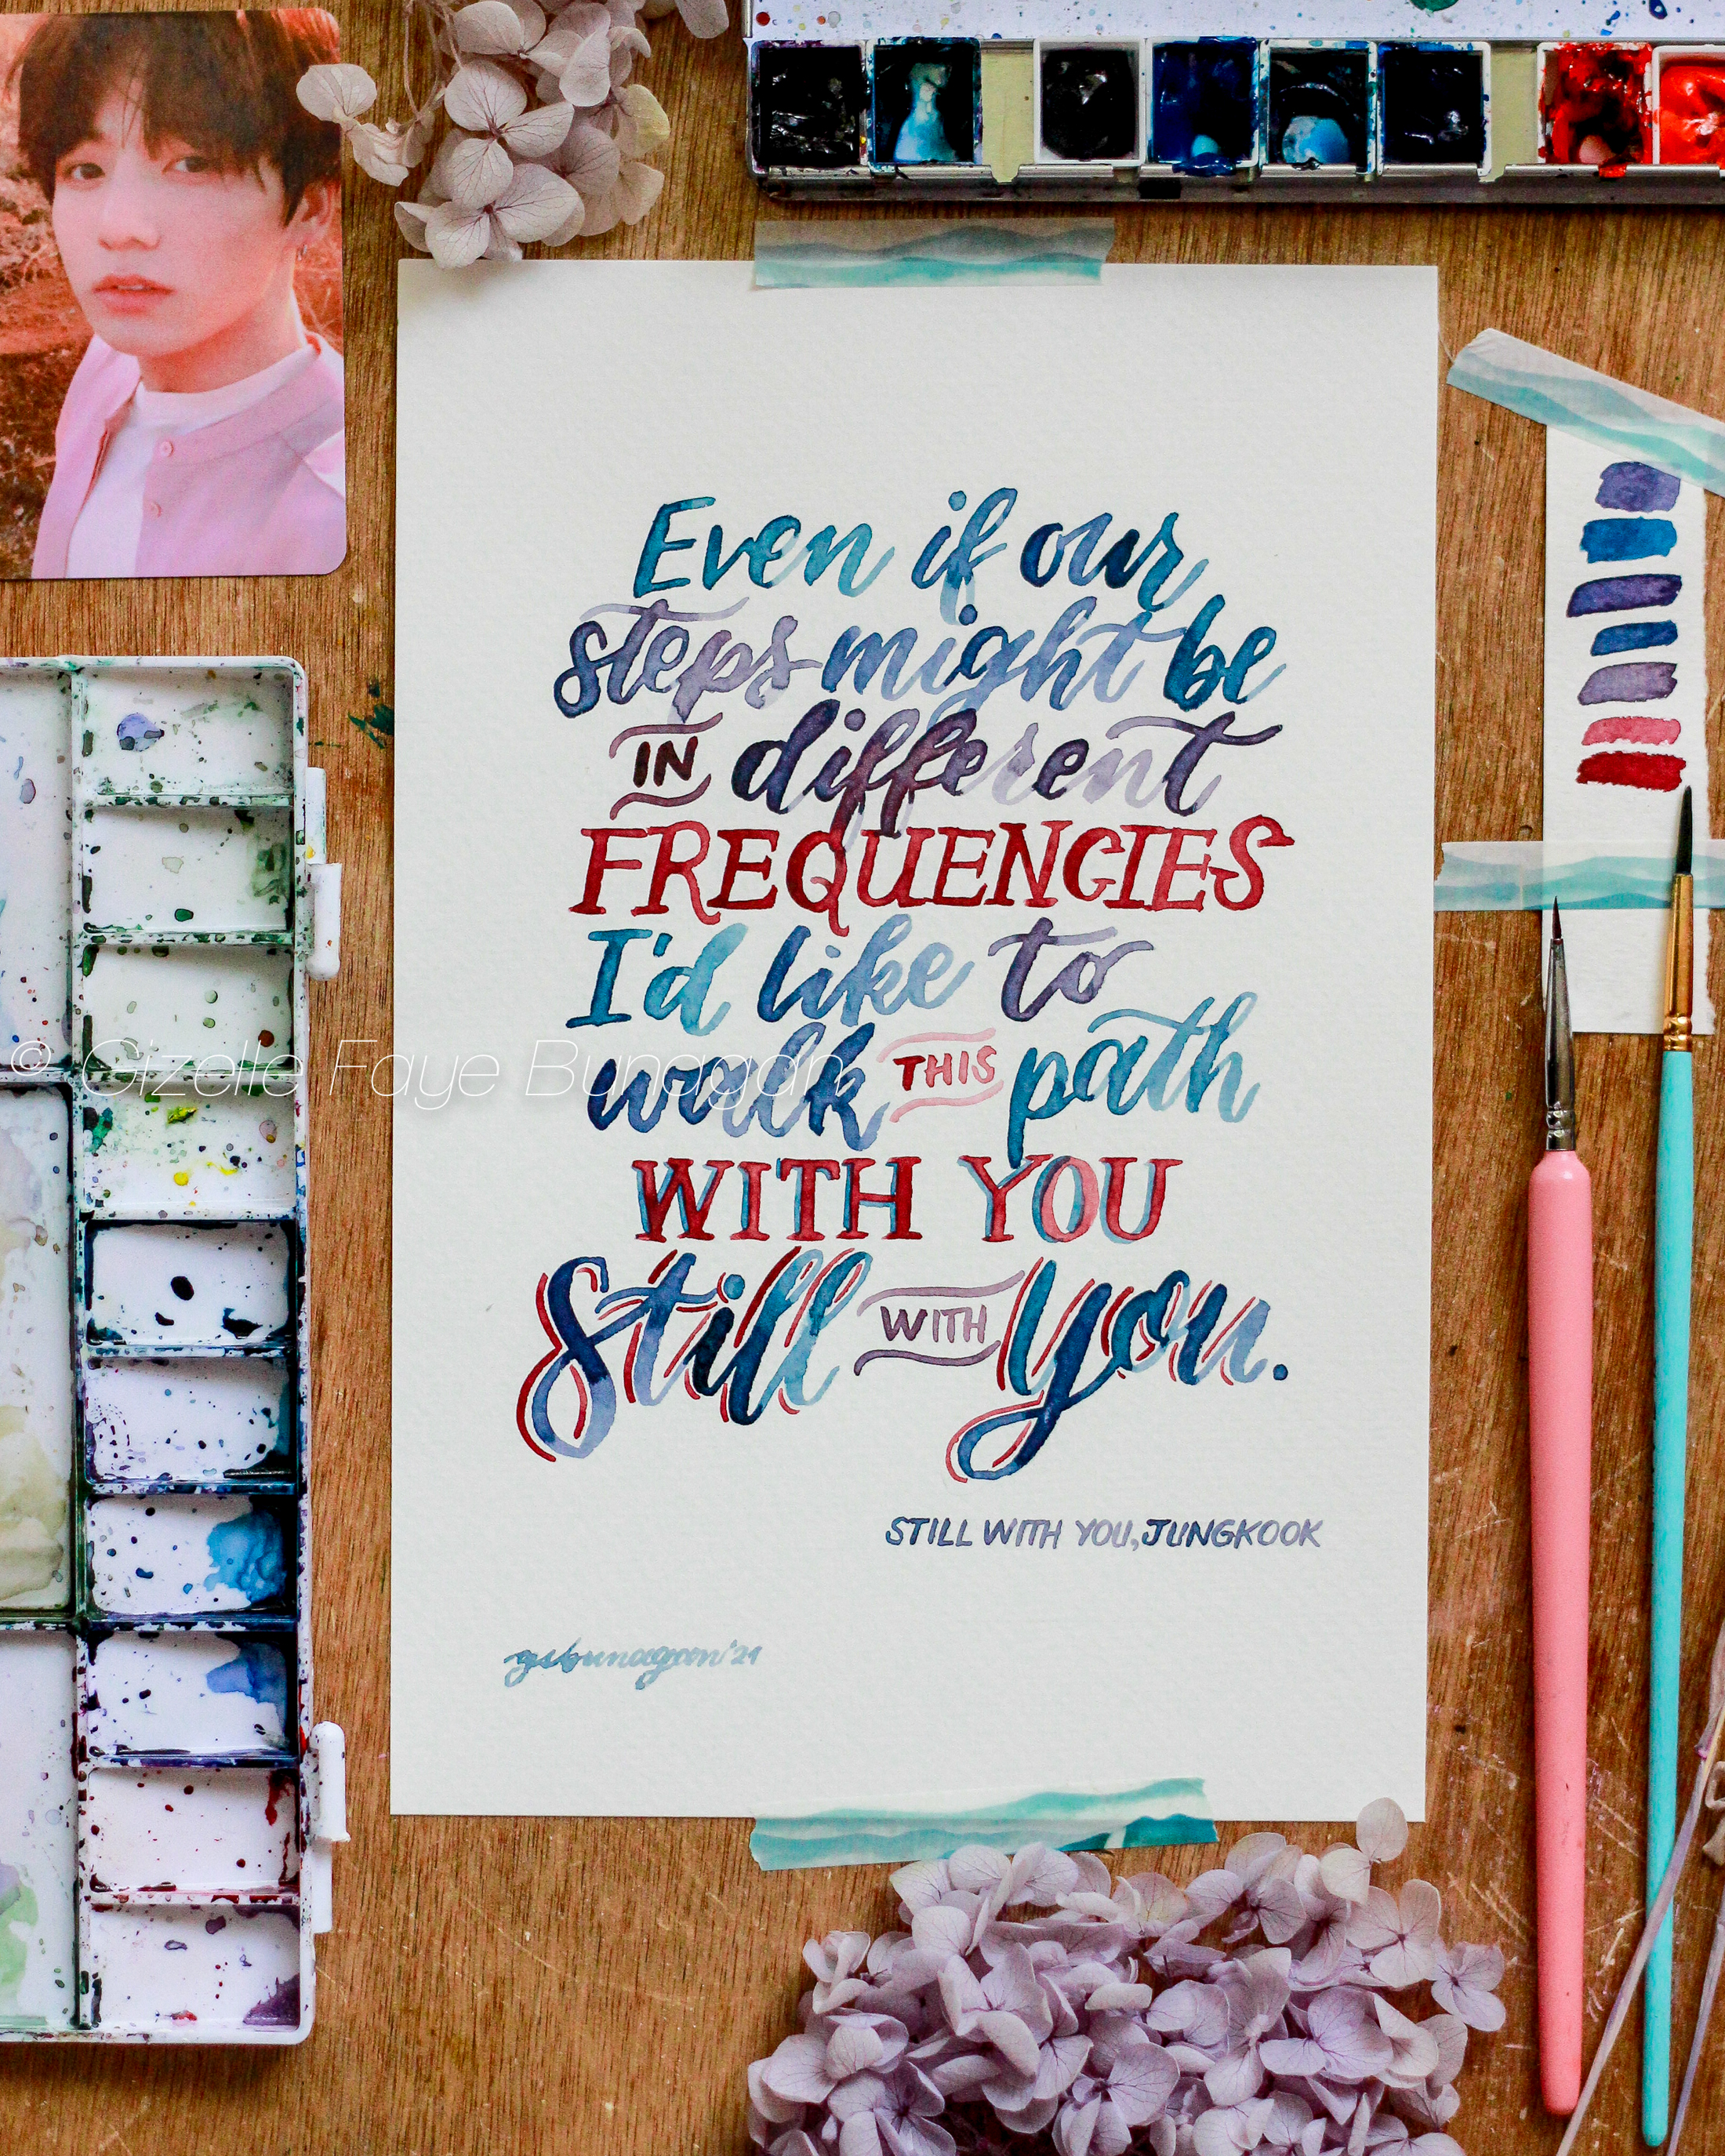 Even if our
steps might be
IN different
FREQUENCIES
I'd like to
walk THIS path
WITH YOU
Still WITH You.
STILL WITH YOU, JUNGKOOK
gsbunagan '21
© Gizelle Faye Bunagan